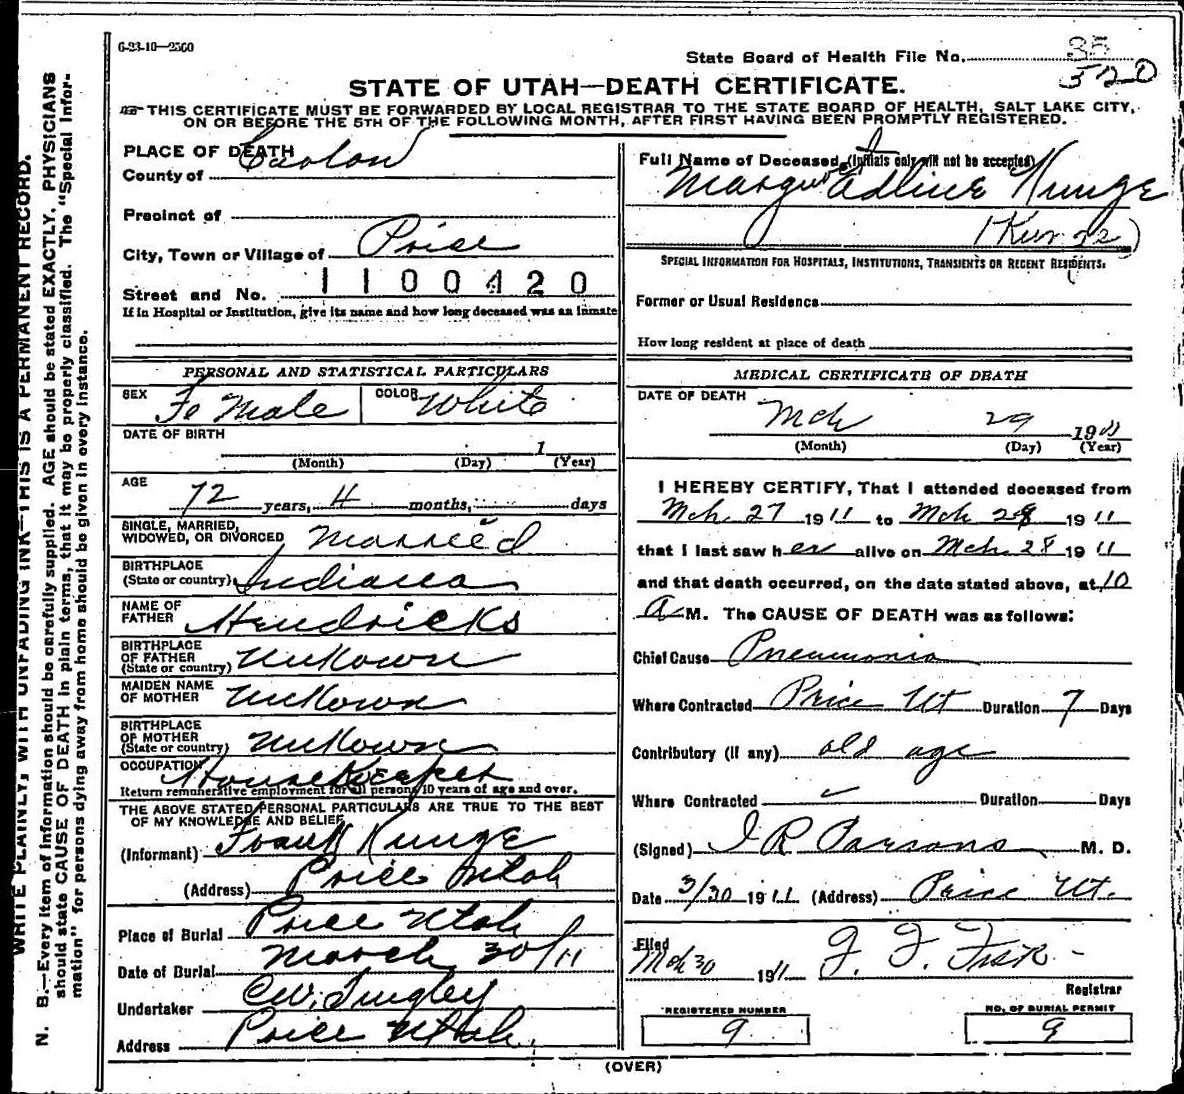 6-23-10—2500
State Board of Health File No. 35
520
STATE OF UTAH—DEATH CERTIFICATE.
THIS CERTIFICATE MUST BE FORWARDED BY LOCAL REGISTRAR TO THE STATE BOARD OF HEALTH, SALT LAKE CITY,
ON OR BEFORE THE 5TH OF THE FOLLOWING MONTH, AFTER FIRST HAVING BEEN PROMPTLY REGISTERED.
WRITE PLAINLY, WITH UNFADING INK—THIS IS A PERMANENT RECORD.
N. B.—Every item of information should be carefully supplied. AGE should be stated EXACTLY. PHYSICIANS
should state CAUSE OF DEATH in plain terms, that it may be properly classified. The "Special Infor-
mation" for persons dying away from home should be given in every instance.
PLACE OF DEATH
County of Carbon
Precinct of
City, Town or Village of Price
1100420
Street and No.
If in Hospital or Institution, give its name and how long deceased was an inmate
PERSONAL AND STATISTICAL PARTICULARS
SEX Fe Male COLOR White
DATE OF BIRTH
1
(Month) (Day) (Year)
AGE
72 years, 4 months, days
SINGLE, MARRIED,
WIDOWED, OR DIVORCED Married
BIRTHPLACE
(State or country) Indiana
NAME OF
FATHER Hendricks
BIRTHPLACE
OF FATHER
(State or country) Unkown
MAIDEN NAME
OF MOTHER Unkown
BIRTHPLACE
OF MOTHER
(State or country) Unkown
OCCUPATION Housekeeper
Return remunerative employment for all persons 10 years of age and over.
THE ABOVE STATED PERSONAL PARTICULARS ARE TRUE TO THE BEST
OF MY KNOWLEDGE AND BELIEF
(Informant) Frank Kunge
(Address) Price Utah
Place of Burial Price Utah
Date of Burial March 30/11
Undertaker C.W. Tingley
Address Price Utah
Full Name of Deceased (Initials only will not be accepted)
Adline Kunge
(Kunze)
SPECIAL INFORMATION FOR HOSPITALS, INSTITUTIONS, TRANSIENTS OR RECENT RESIDENTS.
Former or Usual Residence
How long resident at place of death
MEDICAL CERTIFICATE OF DEATH
DATE OF DEATH
Mch 29 1911
(Month) (Day) (Year)
I HEREBY CERTIFY, That I attended deceased from
Mch 27 1911 to Mch 28 1911
that I last saw her alive on Mch 28 1911
and that death occurred, on the date stated above, at 10
a M. The CAUSE OF DEATH was as follows:
Chief Cause Pneumonia
Where Contracted Price Ut Duration 7 Days
Contributory (if any) old age
Where Contracted Duration Days
(Signed) J R Parsons M. D.
Date 3/30 1911 (Address) Price Ut.
Filed
Mch 30 1911 F. F. Fisk
Registrar
REGISTERED NUMBER
9
NO. OF BURIAL PERMIT
9
(OVER)